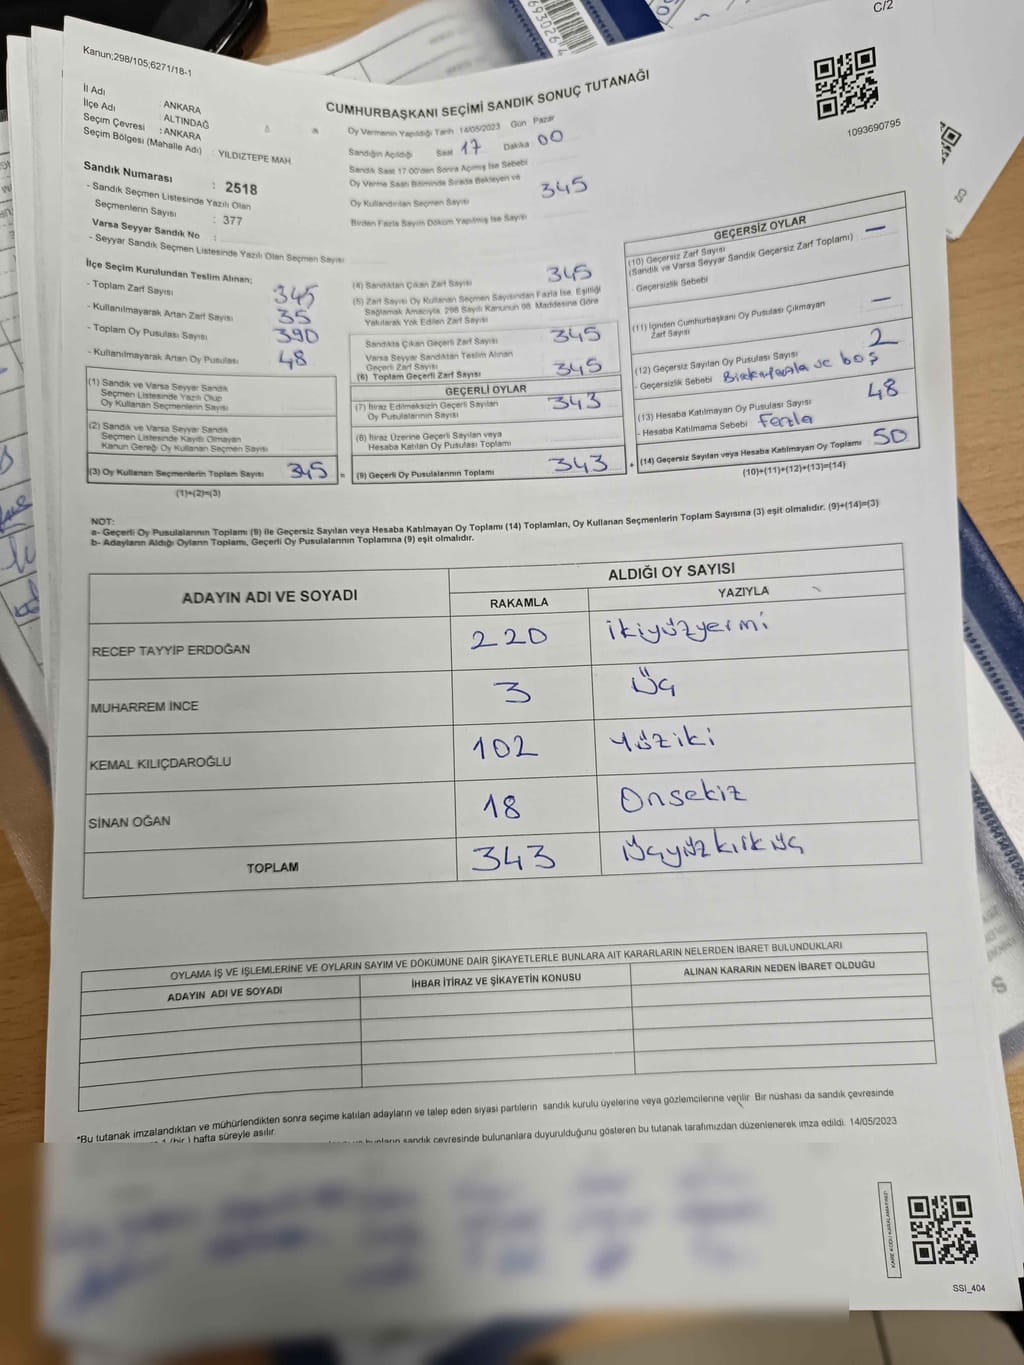 C/2
Kanun;298/105;6271/18-1
1093690795
İl Adı : ANKARA
İlçe Adı : ALTINDAĞ
Seçim Çevresi : ANKARA
Seçim Bölgesi (Mahalle Adı) : YILDIZTEPE MAH.
Sandık Numarası : 2518
- Sandık Seçmen Listesinde Yazılı Olan
Seçmenlerin Sayısı : 377
Varsa Seyyar Sandık No :
- Seyyar Sandık Seçmen Listesinde Yazılı Olan Seçmen Sayısı :
CUMHURBAŞKANI SEÇİMİ SANDIK SONUÇ TUTANAĞI
Oy Vermenin Yapıldığı Tarih 14/05/2023 Gün Pazar
Sandığın Açıldığı Saat 17 Dakika 00
Sandık Saat 17:00'den Sonra Açımış İse Sebebi
Oy Verme Saati Bitiminde Sırada Bekleyen ve
Oy Kullandırılan Seçmen Sayısı 345
Birden Fazla Sayım Döküm Yapılmış İse Sayısı
İlçe Seçim Kurulundan Teslim Alınan;
- Toplam Zarf Sayısı 345
- Kullanılmayarak Artan Zarf Sayısı 35
- Toplam Oy Pusulası Sayısı 390
- Kullanılmayarak Artan Oy Pusulası 48
(1) Sandık ve Varsa Seyyar Sandık
Seçmen Listesinde Yazılı Olup
Oy Kullanan Seçmenlerin Sayısı
(2) Sandık ve Varsa Seyyar Sandık
Seçmen Listesinde Kayıtlı Olmayan
Kanun Gereği Oy Kullanan Seçmen Sayısı
(3) Oy Kullanan Seçmenlerin Toplam Sayısı 345 =
(1)+(2)=(3)
(4) Sandıktan Çıkan Zarf Sayısı 345
(5) Zarf Sayısı Oy Kullanan Seçmen Sayısından Fazla İse, Eşitliği
Sağlamak Amacıyla, 298 Sayılı Kanunun 98. Maddesine Göre
Yakılarak Yok Edilen Zarf Sayısı
Sandıkta Çıkan Geçerli Zarf Sayısı 345
Varsa Seyyar Sandıktan Teslim Alınan
Geçerli Zarf Sayısı
(6) Toplam Geçerli Zarf Sayısı 345
GEÇERLİ OYLAR
(7) İtiraz Edilmeksizin Geçerli Sayılan
Oy Pusulalarının Sayısı 343
(8) İtiraz Üzerine Geçerli Sayılan veya
Hesaba Katılan Oy Pusulası Toplamı
(9) Geçerli Oy Pusulalarının Toplamı 343 +
GEÇERSİZ OYLAR
(10) Geçersiz Zarf Sayısı —
(Sandık ve Varsa Seyyar Sandık Geçersiz Zarf Toplamı)
- Geçersizlik Sebebi
(11) İçinden Cumhurbaşkanı Oy Pusulası Çıkmayan
Zarf Sayısı —
(12) Geçersiz Sayılan Oy Pusulası Sayısı 2
- Geçersizlik Sebebi ve boş
(13) Hesaba Katılmayan Oy Pusulası Sayısı 48
- Hesaba Katılmama Sebebi Fazla
(14) Geçersiz Sayılan veya Hesaba Katılmayan Oy Toplamı 50
(10)+(11)+(12)+(13)=(14)
NOT:
a- Geçerli Oy Pusulalarının Toplamı (9) ile Geçersiz Sayılan veya Hesaba Katılmayan Oy Toplamı (14) Toplamları, Oy Kullanan Seçmenlerin Toplam Sayısına (3) eşit olmalıdır. (9)+(14)=(3)
b- Adayların Aldığı Oyların Toplamı, Geçerli Oy Pusulalarının Toplamına (9) eşit olmalıdır.
ADAYIN ADI VE SOYADI ALDIĞI OY SAYISI
RAKAMLA YAZIYLA
RECEP TAYYİP ERDOĞAN 220 ikiyüzyermi
MUHARREM İNCE 3 üç
KEMAL KILIÇDAROĞLU 102 Yüziki
SİNAN OĞAN 18 Onsekiz
TOPLAM 343 üçyüzkırküç
OYLAMA İŞ VE İŞLEMLERİNE VE OYLARIN SAYIM VE DÖKÜMÜNE DAİR ŞİKAYETLERLE BUNLARA AİT KARARLARIN NELERDEN İBARET BULUNDUKLARI
ADAYIN ADI VE SOYADI İHBAR İTİRAZ VE ŞİKAYETİN KONUSU ALINAN KARARIN NEDEN İBARET OLDUĞU
*Bu tutanak imzalandıktan ve mühürlendikten sonra seçime katılan adayların ve talep eden siyasi partilerin sandık kurulu üyelerine veya gözlemcilerine verilir. Bir nüshası da sandık çevresinde
1 (bir) hafta süreyle asılır.
bunların sandık çevresinde bulunanlara duyurulduğunu gösteren bu tutanak tarafımızdan düzenlenerek imza edildi. 14/05/2023
KARE KODU KARALAMAYINIZ!
SSI_404